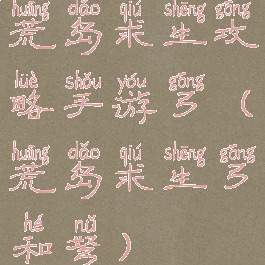 huāng dǎo qiú shēng gōng
荒岛求生攻
lüè shǒu yóu gōng
略手游弓（
huāng dǎo qiú shēng gōng
荒岛求生弓
hé nǔ
和弩）